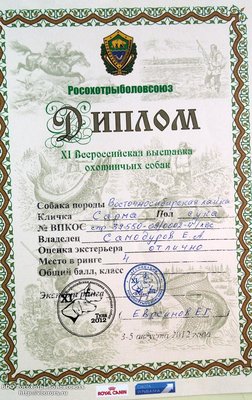 Росохотрыболовсоюз
ДИПЛОМ
XI Всероссийская выставка
охотничьих собак
Собака породы Восточносибирская лайка
Кличка Сарма Пол сука
№ ВПКОС
Владелец Самодуров Е. А.
Оценка экстерьера отлично
Место в ринге 4
Общий балл, класс
Эксперт ринга
Тула
2012
Еврсанов Е.Г.
3-5 августа 2012 года
ROYAL CANIN